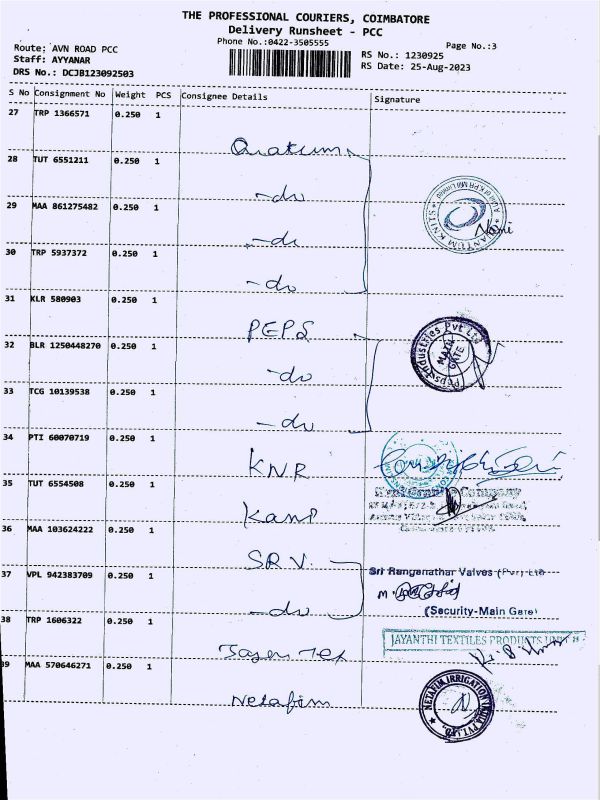 THE PROFESSIONAL COURIERS, COIMBATORE
Delivery Runsheet - PCC
Phone No.:0422-3505555
Page No.:3
Route: AVN ROAD PCC
RS No.: 1230925
Staff: AYYANAR
RS Date: 25-Aug-2023
DRS No.: DCJB123092503
S No Consignment No Weight PCS Consignee Details Signature
27 TRP 1366571 0.250 1
Quatum
28 TUT 6551211 0.250 1
-do
29 MAA 861275482 0.250 1
-do
30 TRP 5937372 0.250 1
-do
31 KLR 580903 0.250 1
PEPS
32 BLR 1250448270 0.250 1
-do
33 TCG 10139538 0.250 1
-do
34 PTI 60070719 0.250 1
KNR
35 TUT 6554508 0.250 1
Kanp
36 MAA 103624222 0.250 1
SRV
37 VPL 942383709 0.250 1
Sri Ranganathar Valves (Pvt) Ltd
-do
(Security-Main Gate)
38 TRP 1606322 0.250 1
JAYANTHI TEXTILES PRODUCTS UNIT
39 MAA 570646271 0.250 1
Netafim
Peps Industries Pvt Ltd
MAIN GATE
NETAFIM IRRIGATION INDIA PVT LTD.